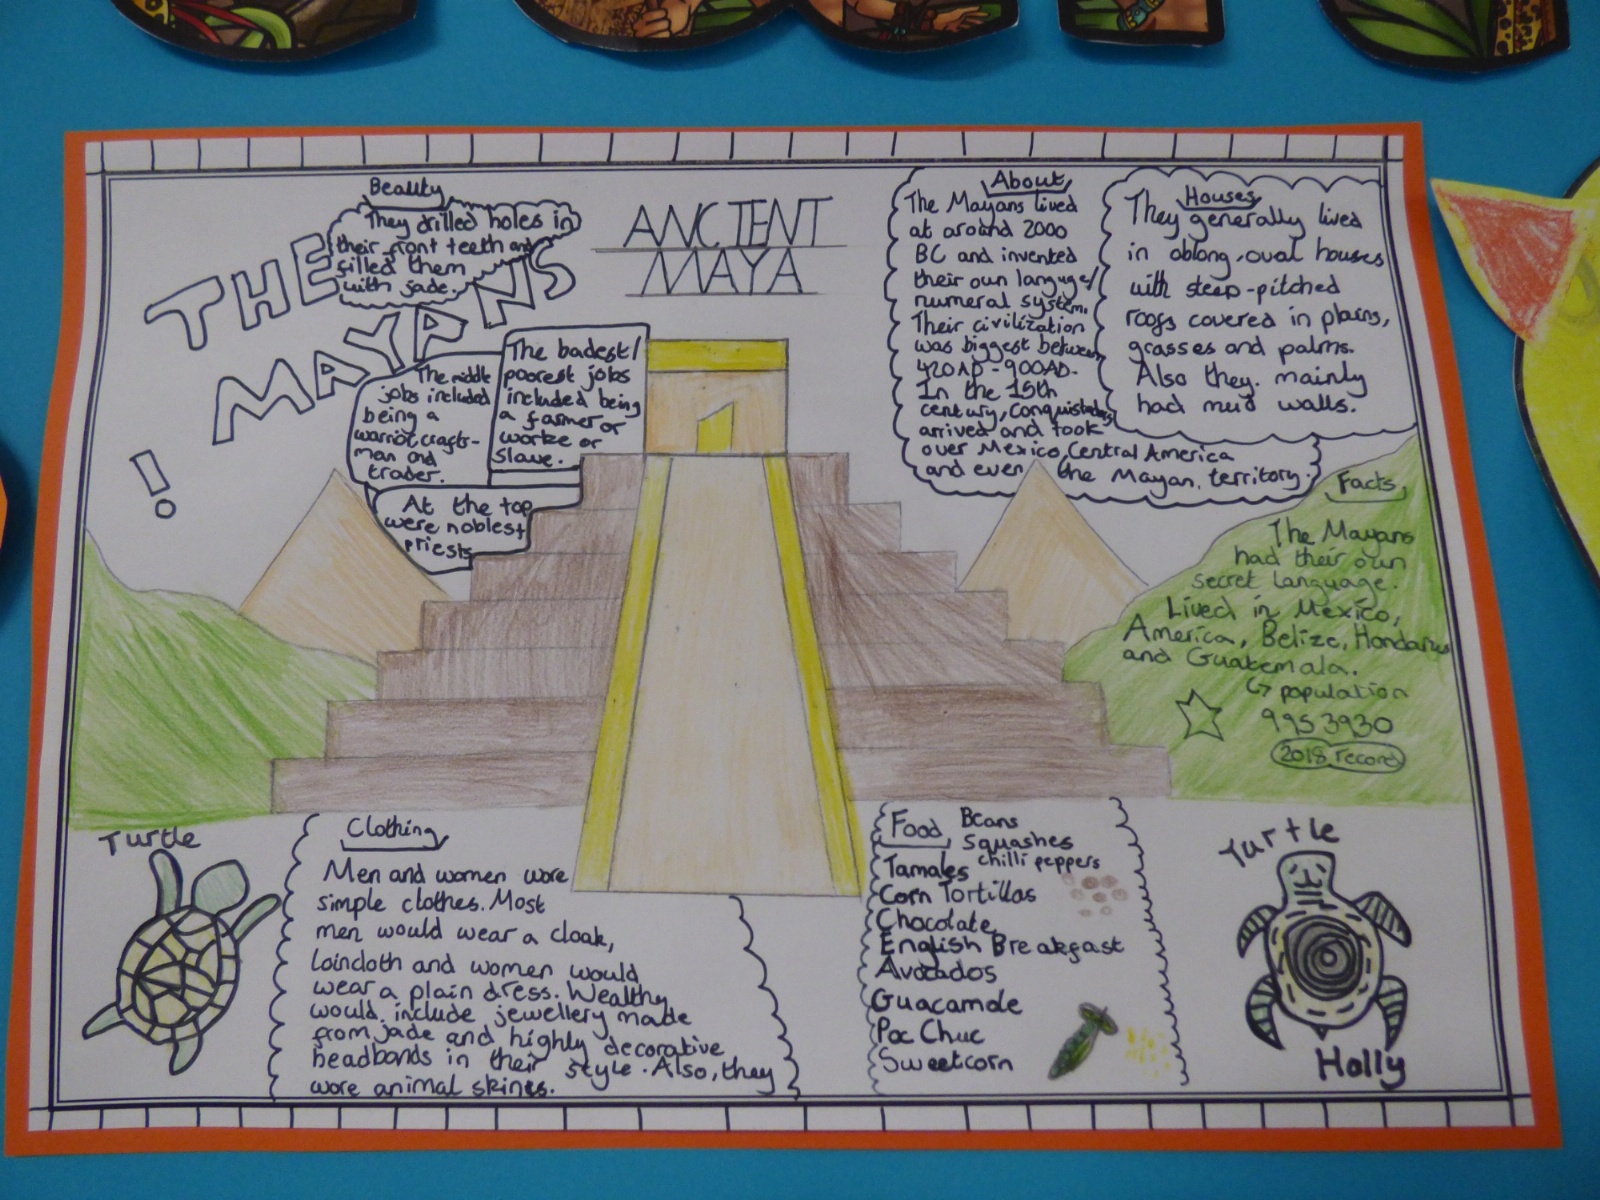 Beauty
They drilled holes in
their front teeth and
filled them
with jade.
THE
MAYANS
!
ANCIENT
MAYA
The badest/
poorest jobs
included being
a farmer or
worke or
slave.
The middle
jobs included
being a
warrior, crafts-
man and
trader.
At the top
were noblest
priests
About
The Mayans lived
at around 2000
BC and invented
their own languge/
numeral system.
Their civilization
was biggest between
420AD-900AD.
In the 15th
century, Conquistadors
arrived and took
over Mexico, Central America
and even the Mayan territory.
Houses
They generally lived
in oblong, oval houses
with steep-pitched
roofs covered in plams,
grasses and palms.
Also they mainly
had mud walls.
Facts
The Mayans
had their own
secret language.
Lived in Mexico,
America, Belize, Hondarus
and Guatemala.
↳ population
9953930
2018 record
Turtle
Clothing
Men and women wore
simple clothes. Most
men would wear a cloak,
loincloth and women would
wear a plain dress. Wealthy
would include jewellery made
from jade and highly decorative
headbands in their style. Also, they
wore animal skines.
Food
Beans
Squashes
chilli peppers
Tamales
Corn Tortillas
Chocolate
English Breakfast
Avocados
Guacamole
Poc Chuc
Sweetcorn
Turtle
Holly